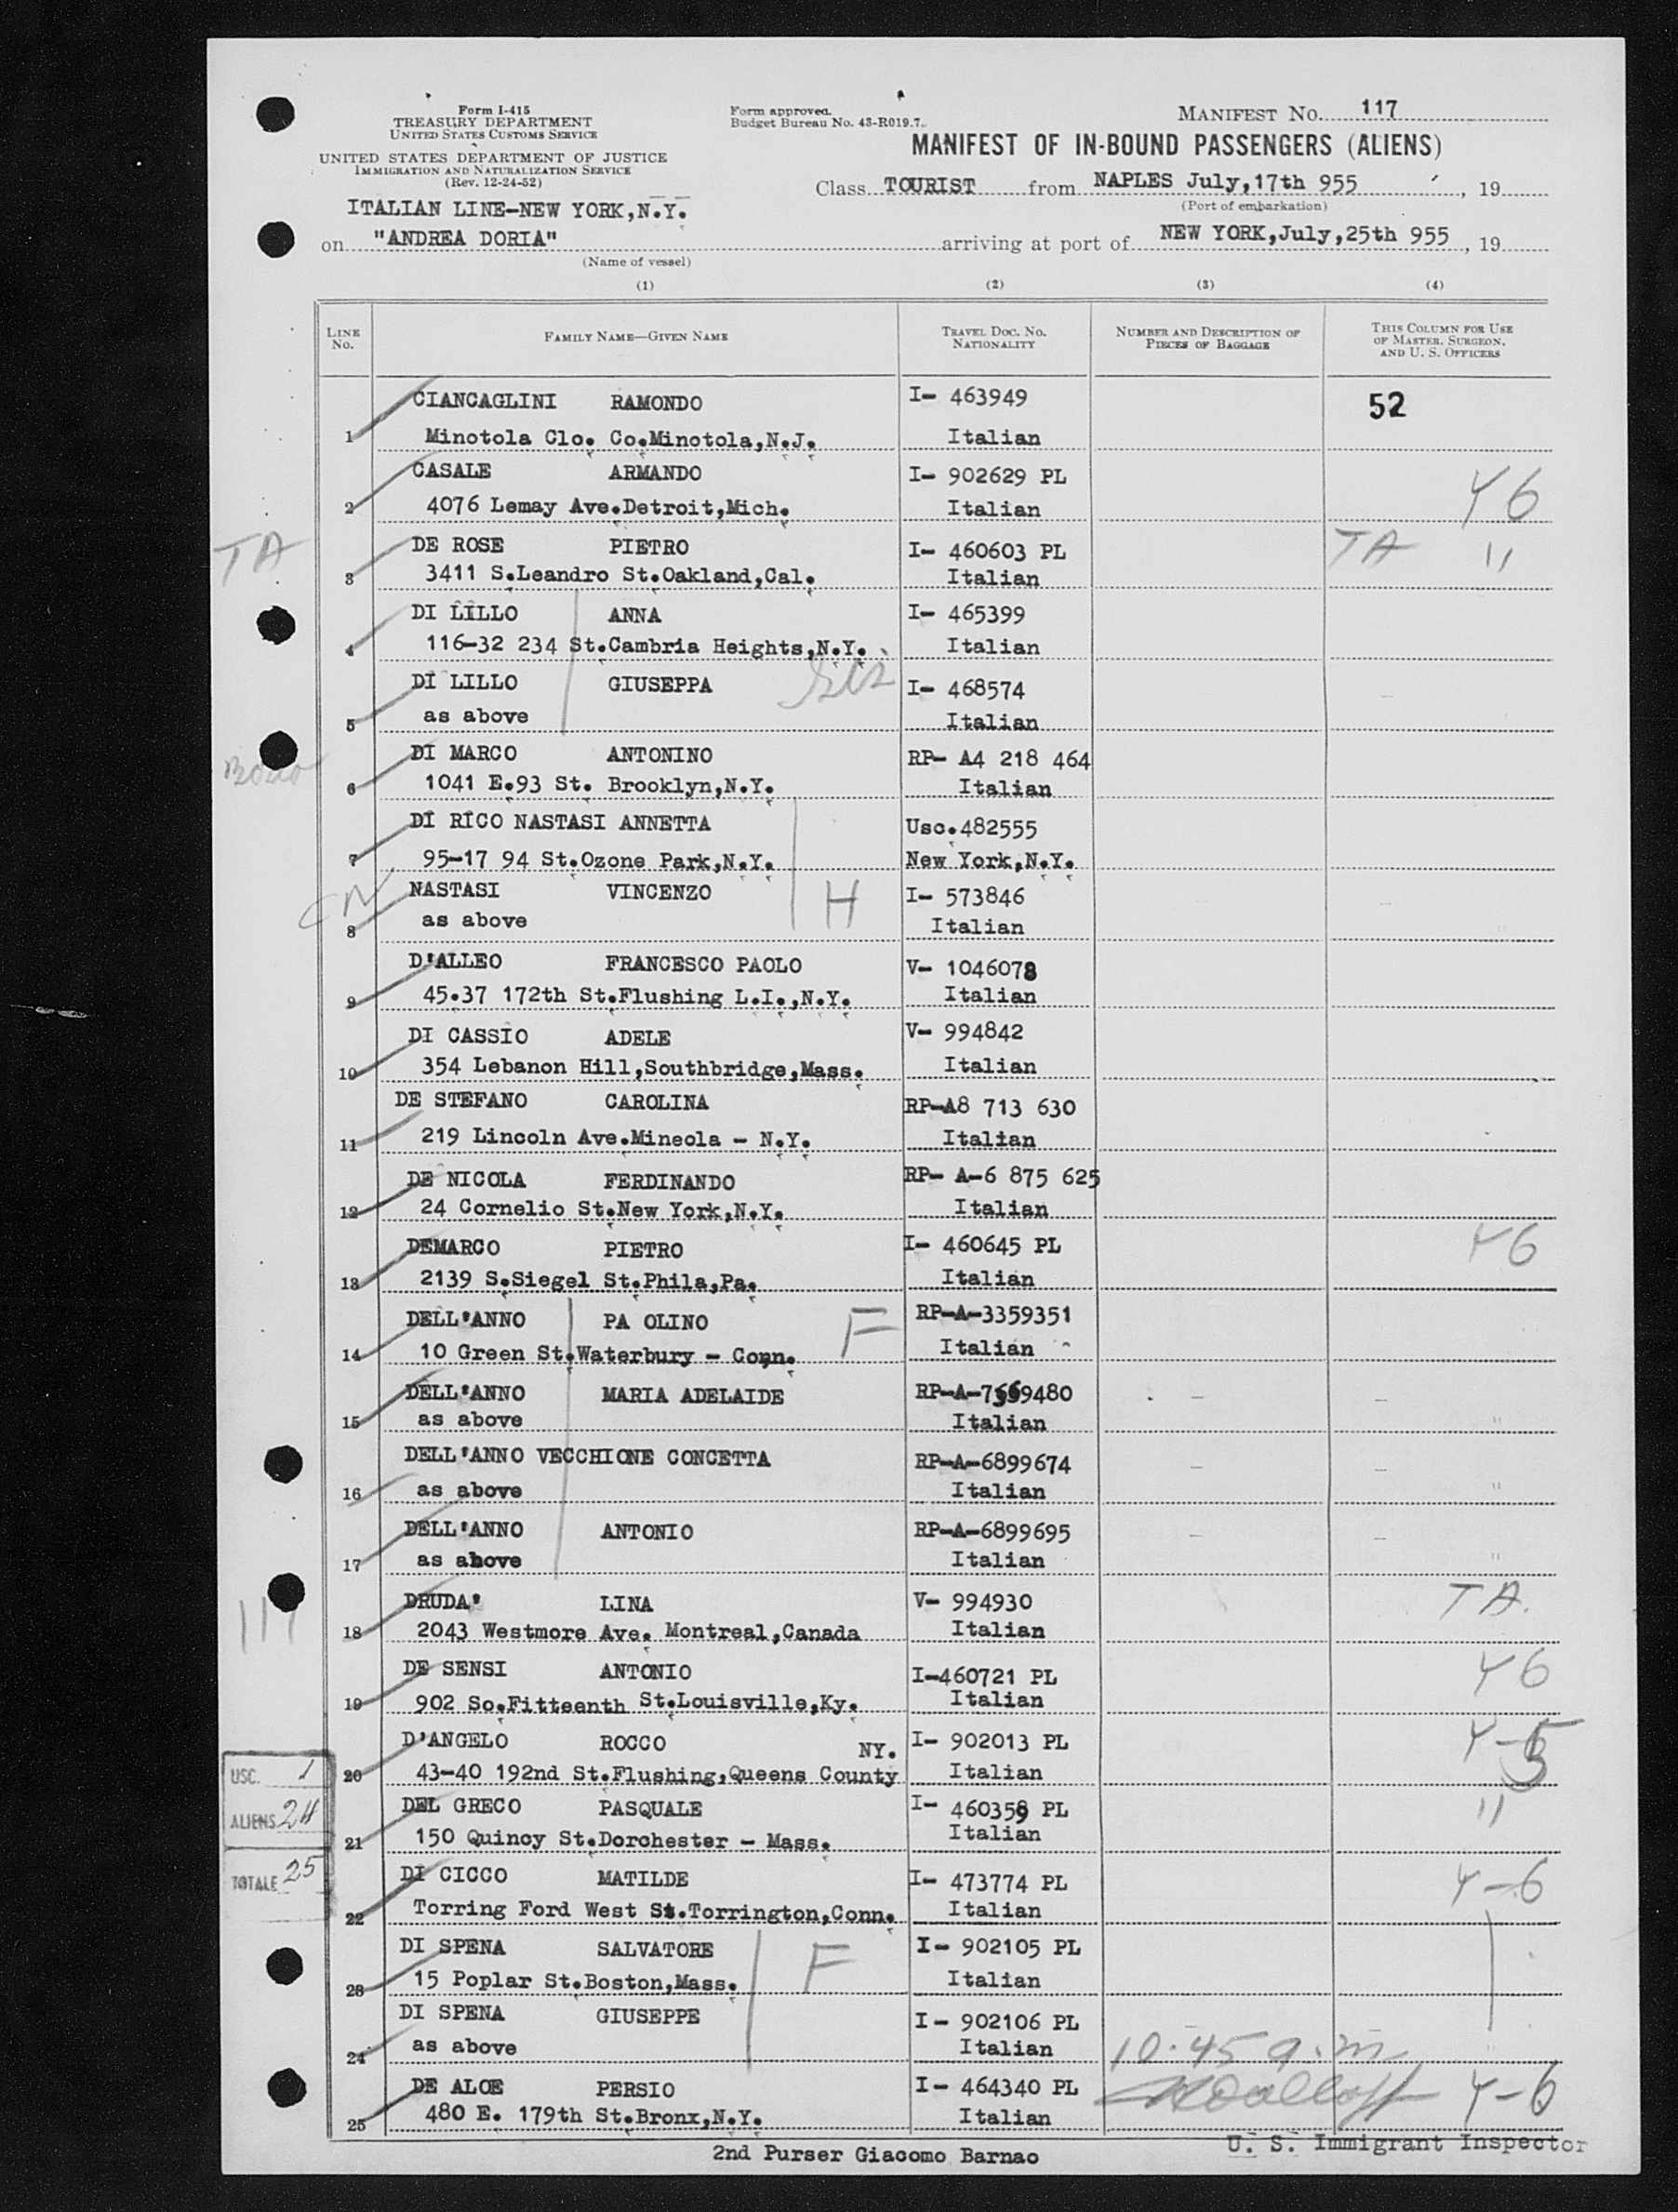 Form I-415
TREASURY DEPARTMENT
UNITED STATES CUSTOMS SERVICE
UNITED STATES DEPARTMENT OF JUSTICE
IMMIGRATION AND NATURALIZATION SERVICE
(Rev. 12-24-52)
Form approved.
Budget Bureau No. 43-R019.7.
MANIFEST NO. 117
MANIFEST OF IN-BOUND PASSENGERS (ALIENS)
Class TOURIST from NAPLES July,17th 955, 19
(Port of embarkation)
ITALIAN LINE-NEW YORK,N.Y.
on "ANDREA DORIA" arriving at port of NEW YORK,July,25th 955, 19
(Name of vessel)
(1) (2) (3) (4)
LINE NO. FAMILY NAME—GIVEN NAME TRAVEL DOC. NO. NATIONALITY NUMBER AND DESCRIPTION OF PIECES OF BAGGAGE THIS COLUMN FOR USE OF MASTER, SURGEON, AND U. S. OFFICERS
CIANCAGLINI RAMONDO I- 463949 52
1 Minotola Clo. Co.Minotola,N.J. Italian
CASALE ARMANDO I- 902629 PL Y6
2 4076 Lemay Ave.Detroit,Mich. Italian
TA DE ROSE PIETRO I- 460603 PL TA "
3 3411 S.Leandro St.Oakland,Cal. Italian
DI LILLO ANNA I- 465399
4 116-32 234 St.Cambria Heights,N.Y. Italian
DI LILLO GIUSEPPA I- 468574
5 as above Italian
DI MARCO ANTONINO RP- A4 218 464
6 1041 E.93 St. Brooklyn,N.Y. Italian
DI RICO NASTASI ANNETTA Usc.482555
7 95-17 94 St.Ozone Park,N.Y. New York,N.Y.
CN NASTASI VINCENZO H I- 573846
8 as above Italian
D'ALLEO FRANCESCO PAOLO V- 1046078
9 45.37 172th St.Flushing L.I.,N.Y. Italian
DI CASSIO ADELE V- 994842
10 354 Lebanon Hill,Southbridge,Mass. Italian
DE STEFANO CAROLINA RP-A8 713 630
11 219 Lincoln Ave.Mineola - N.Y. Italian
DE NICOLA FERDINANDO RP- A-6 875 625
12 24 Cornelio St.New York,N.Y. Italian
DEMARCO PIETRO I- 460645 PL Y6
13 2139 S.Siegel St.Phila,Pa. Italian
DELL'ANNO PA OLINO F RP-A-3359351
14 10 Green St.Waterbury - Conn. Italian
DELL'ANNO MARIA ADELAIDE
15 as above Italian
DELL'ANNO VECCHIONE CONCETTA RP-A-6899674
16 as above Italian
DELL'ANNO ANTONIO RP-A-6899695
17 as above Italian
117 DRUDA' LINA V- 994930 TA.
18 2043 Westmore Ave. Montreal,Canada Italian
DE SENSI ANTONIO I-460721 PL Y6
19 902 So.Fitteenth St.Louisville,Ky. Italian
D'ANGELO ROCCO NY. I- 902013 PL Y-5
20 43-40 192nd St.Flushing,Queens County Italian
USC. 1
DEL GRECO PASQUALE I- 460359 PL "
ALIENS 24
21 150 Quincy St.Dorchester - Mass. Italian
TOTALE 25
DI CICCO MATILDE I- 473774 PL Y-6
22 Torring Ford West St.Torrington,Conn. Italian
DI SPENA SALVATORE F I- 902105 PL
23 15 Poplar St.Boston,Mass. Italian
DI SPENA GIUSEPPE I- 902106 PL
24 as above Italian 10.45 a.m
DE ALOE PERSIO I- 464340 PL Y-6
25 480 E. 179th St.Bronx,N.Y. Italian
2nd Purser Giacomo Barnao U. S. Immigrant Inspector